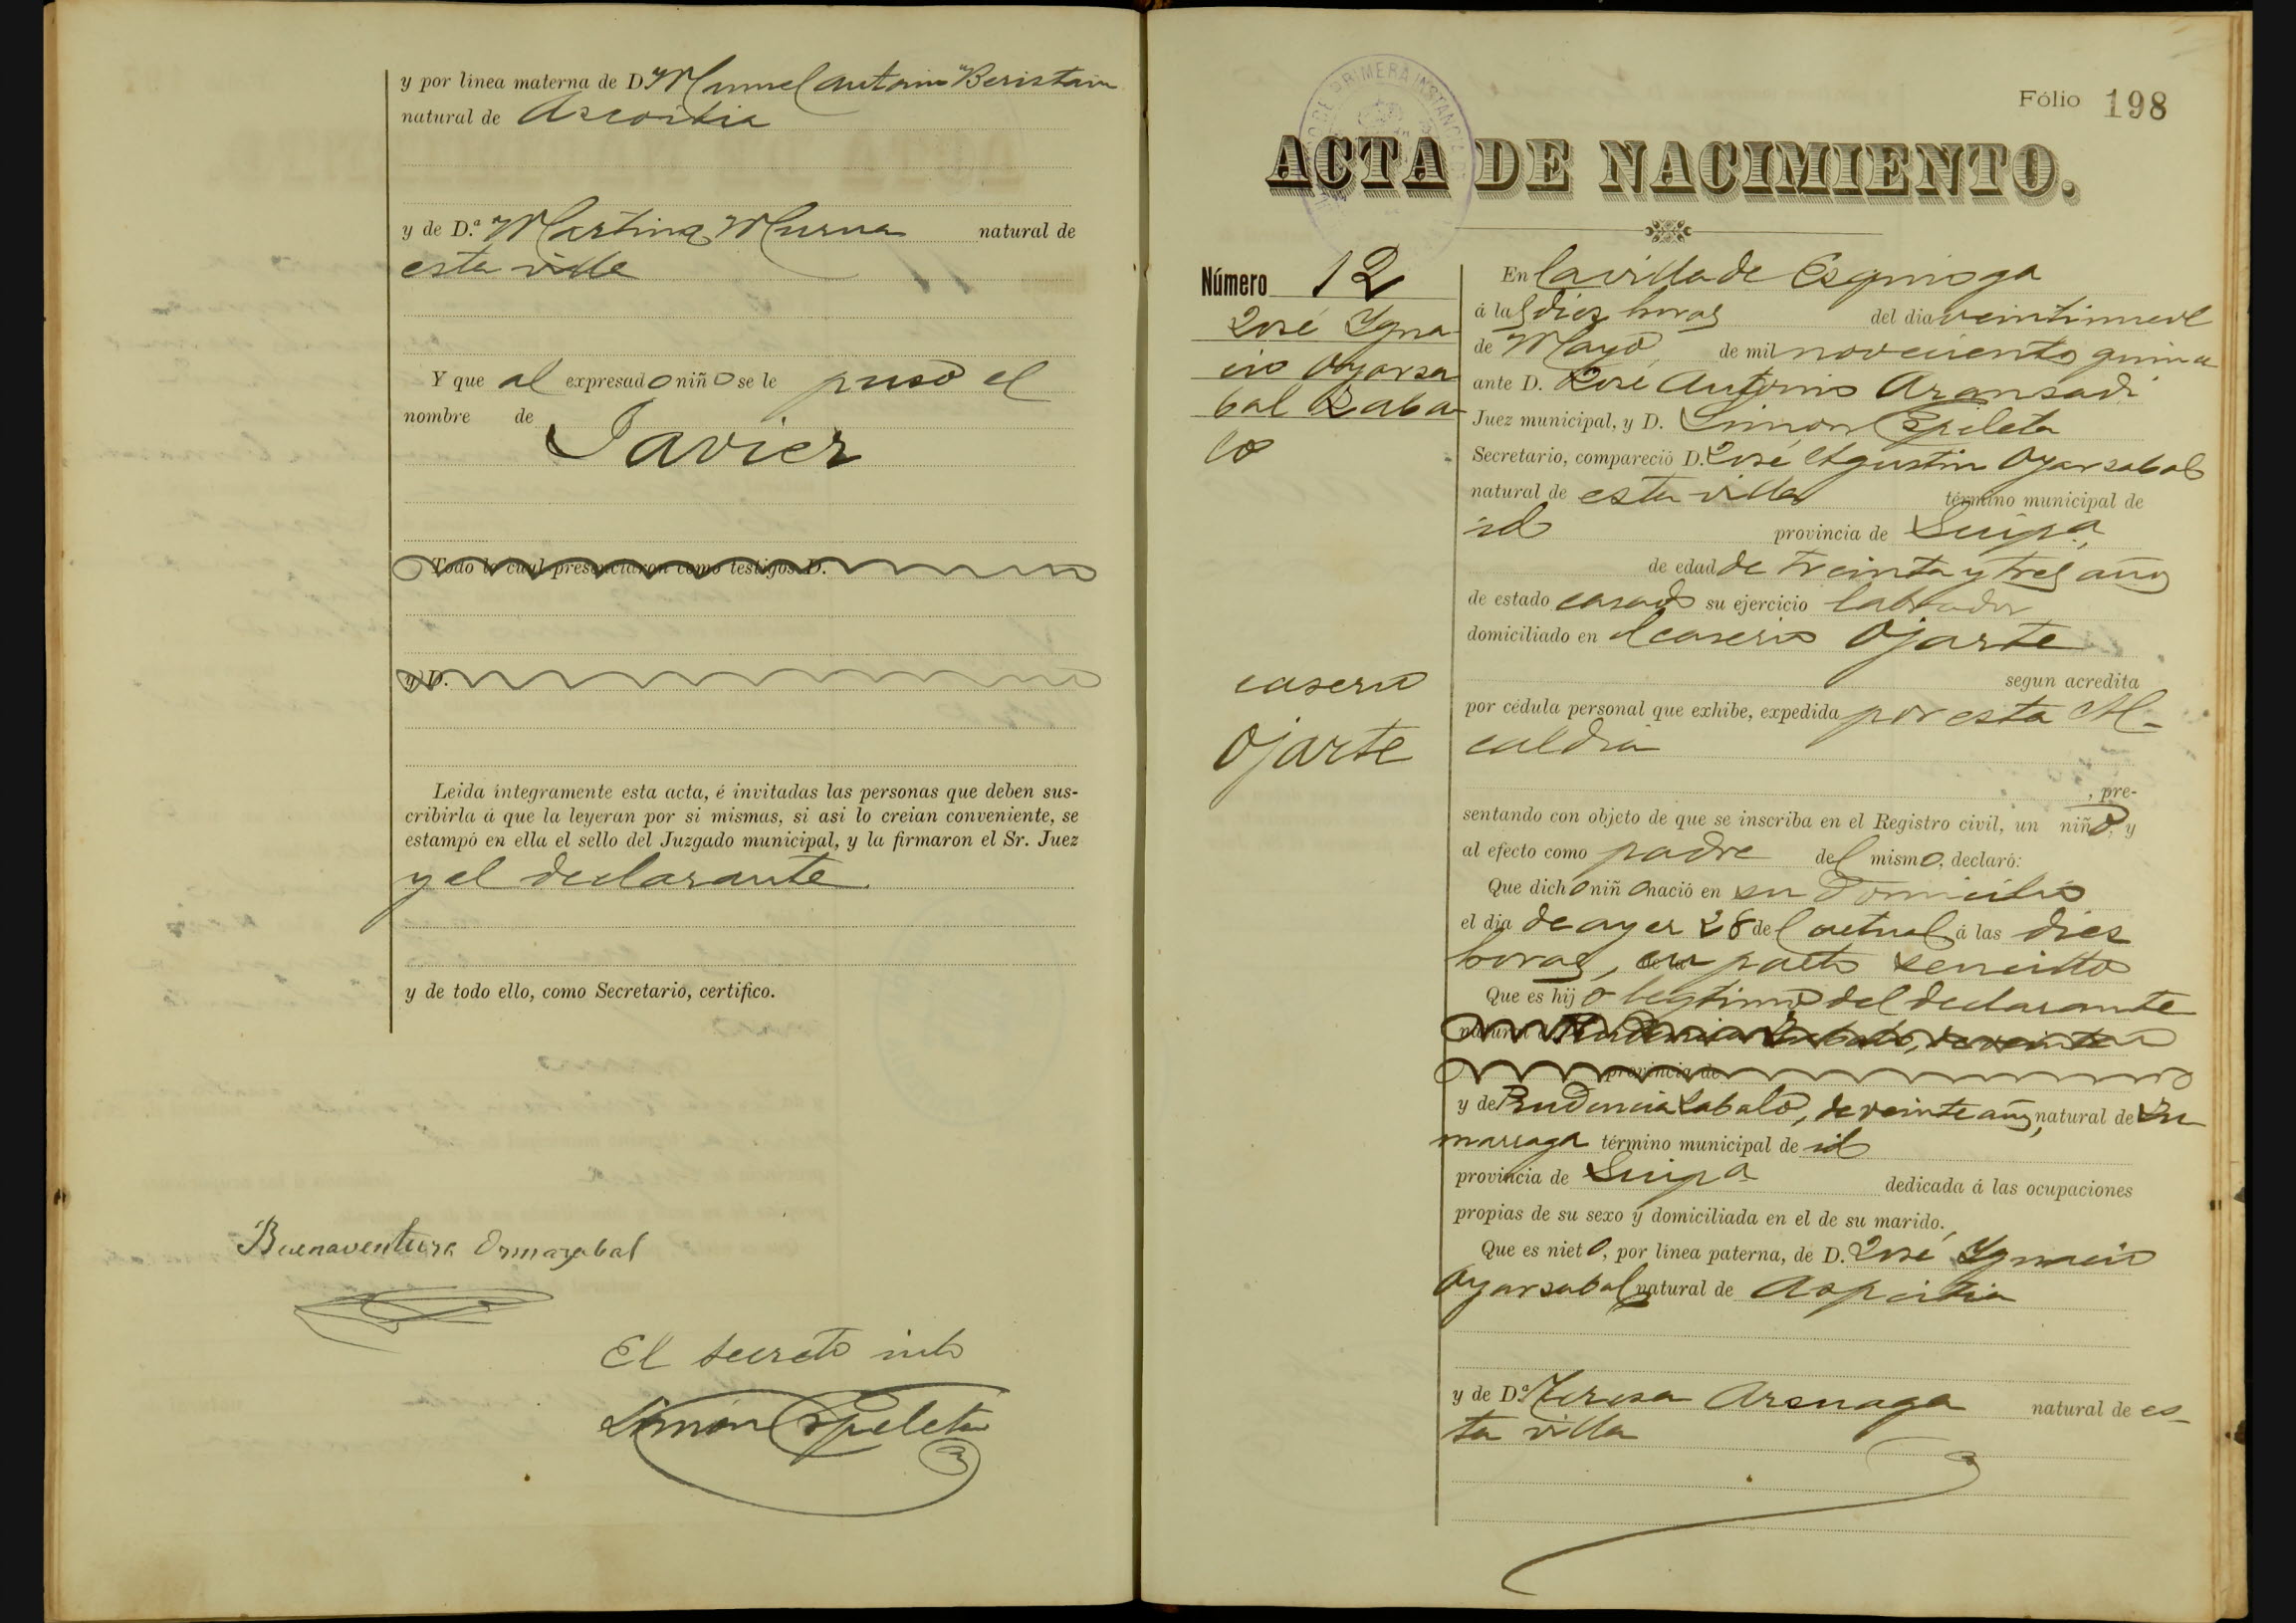 y por línea materna de D. Manuel Antonio Beristain
natural de Ascoitia
y de D.ª Martina Murua natural de
esta villa
Y que al expresado niño se le puso el
nombre de
Javier
Todo lo cual presenciaron como testigos D.
y D.
Leida íntegramente esta acta, é invitadas las personas que deben sus-
cribirla á que la leyeran por si mismas, si asi lo creian conveniente, se
estampó en ella el sello del Juzgado municipal, y la firmaron el Sr. Juez
y el declarante.
y de todo ello, como Secretario, certifico.
Buenaventura Ormazabal
El Secreto into
Simón Espeleta
Fólio 198
ACTA DE NACIMIENTO.
Número 12
José Ygna-
cio Oyarsa
bal Zaba-
lo
caserio
Ojarte
En la villa de Esquioga
á las diez horas del dia veintinueve
de Mayo de mil novecientos quince
ante D. José Antonio Aransadi
Juez municipal, y D. Simon Espeleta
Secretario, compareció D. José Agustin Oyarsabal
natural de esta villa término municipal de
id provincia de Guipª
de edad de treinta y tres años
de estado casado su ejercicio labrador
domiciliado en el caserio Ojarte
segun acredita
por cédula personal que exhibe, expedida por esta Al-
caldia
, pre-
sentando con objeto de que se inscriba en el Registro civil, un niño, y
al efecto como padre del mismo, declaró:
Que dicho niño nació en su domicilio
el dia de ayer 28 del actual á las dies
horas, en parto sencillo
Que es hijo legtimo del declarante
natural de Prudencia Zabalo, de veinte
provincia de
y de Prudencia Zabalo, de veinte años, natural de Zu
marraga término municipal de id
provincia de Guipª dedicada á las ocupaciones
propias de su sexo y domiciliada en el de su marido.
Que es nieto, por línea paterna, de D. José Ygnacio
Oyarsabal natural de Aspeitia
y de D.ª Teresa Arsuaga natural de es-
ta villa